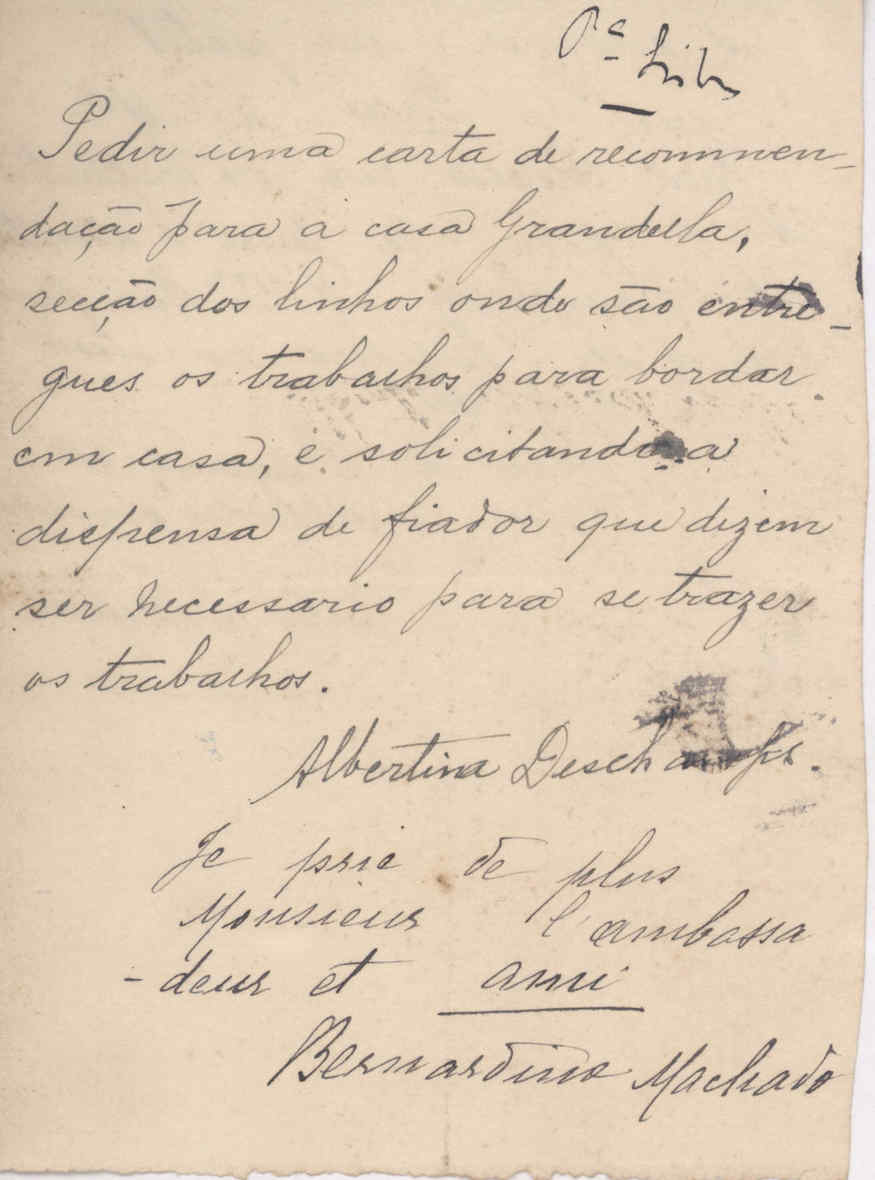 Pª
Pedir uma carta de recommen-
dação para a casa Grandella,
secção dos linhos onde são entre-
gues os trabalhos para bordar
em casa, e solicitando a
dispensa de fiador que dizem
ser necessario para se trazer
os trabalhos.
Albertina Deschamps.
Je prie de plus
Monsieur l'ambassa
-deur et ami
Bernardino Machado